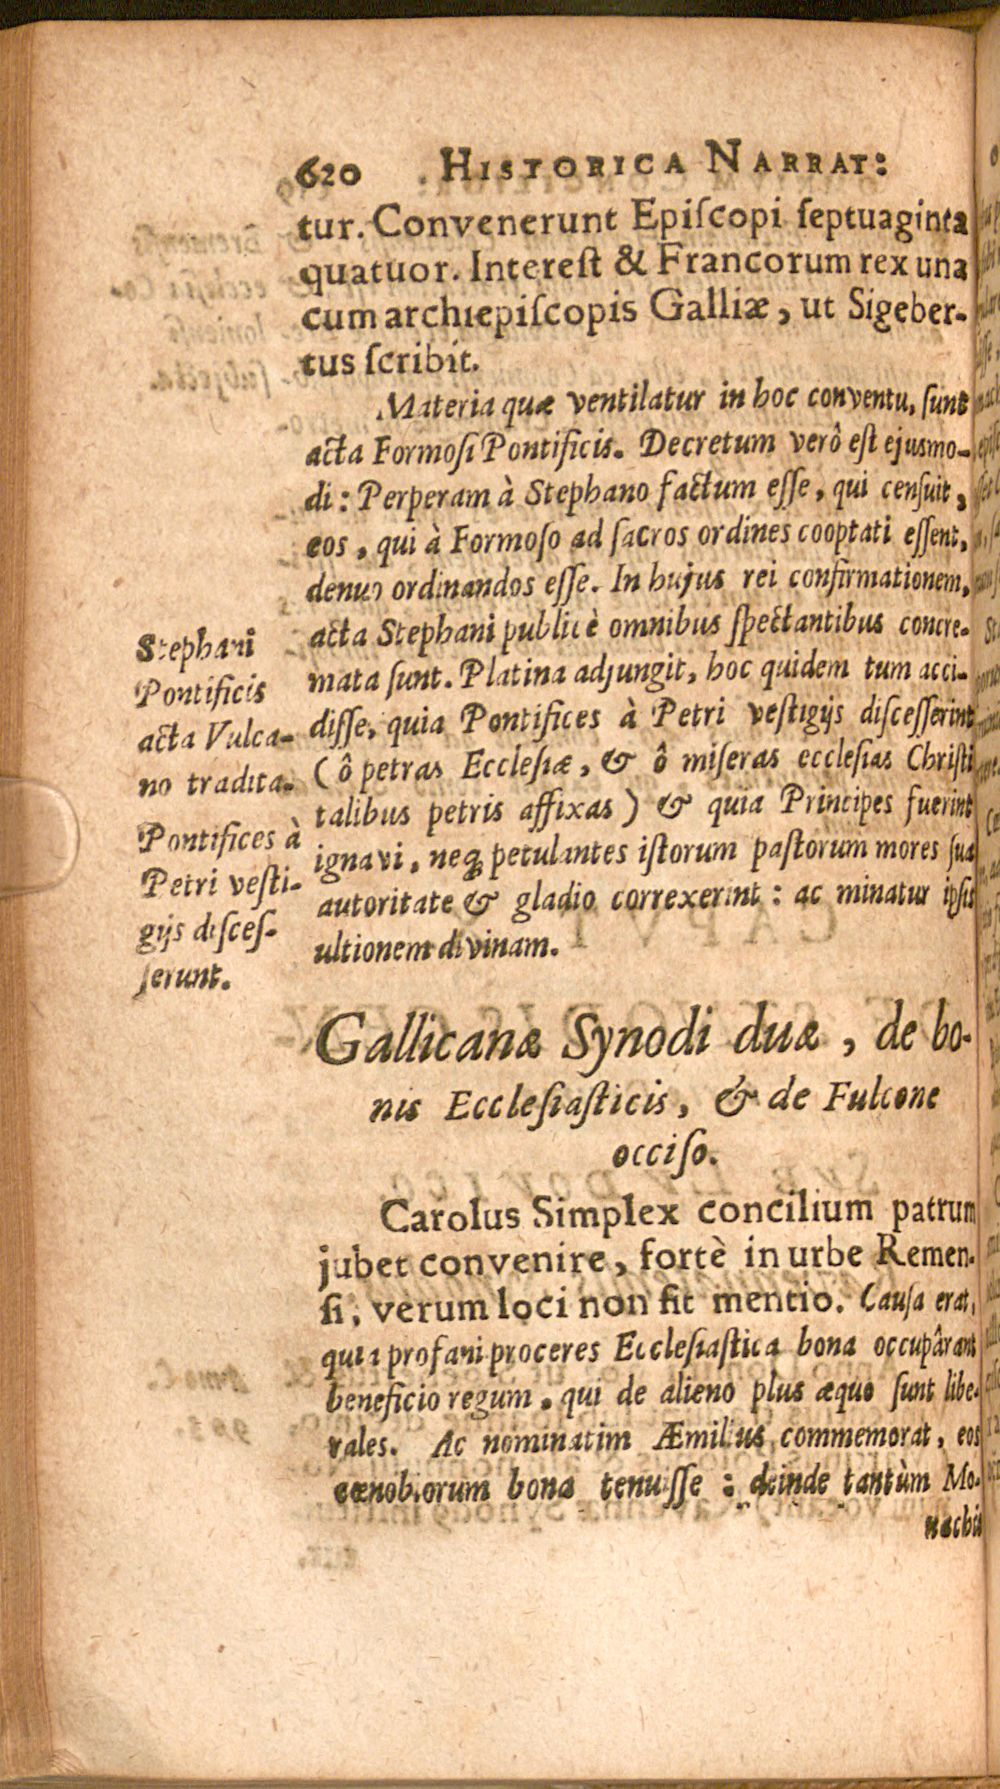 620 HISTORICA NARRAT:
tur. Convenerunt Epiſcopi ſeptuaginta
quatuor. Intereſt & Francorum rex una
cum archiepiſcopis Galliæ, ut Sigeber-
tus ſcribit.
Materia quæ ventilatur in hoc conventu, ſunt
acta Formoſi Pontificis. Decretum verò eſt ejusmo-
di: Perperam à Stephano factum eſſe, qui cenſuit,
eos, qui à Formoſo ad ſacros ordines cooptati eſſent,
denuo ordinandos eſſe. In hujus rei confirmationem,
acta Stephani publicè omnibus ſpectantibus concre-
mata ſunt. Platina adjungit, hoc quidem tum acci-
diſſe, quia Pontifices à Petri veſtigijs diſceſſerint
(ô petras Eccleſiæ, & ô miſeras eccleſias Chriſti
talibus petris affixas) & quia Principes fuerint
ignavi, neq; petulantes iſtorum paſtorum mores ſua
autoritate & gladio correxerint: ac minatur ipſis
ultionem divinam.
Stephani
Pontificis
acta Vulca-
no tradita.
Pontifices à
Petri veſti-
gijs diſceſ-
ſerunt.
Gallicanæ Synodi duæ, de bo-
nis Eccleſiaſticis, & de Fulcone
occiſo.
Carolus Simplex concilium patrum
jubet convenire, fortè in urbe Remen-
ſi, verum loci non fit mentio. Cauſa erat,
quia profani proceres Eccleſiaſtica bona occupârant
beneficio regum, qui de alieno plus æquo ſunt libe-
rales. Ac nominatim Æmilius commemorat, eos
cœnobiorum bona tenuiſſe: deinde tantùm Mo-
nachis